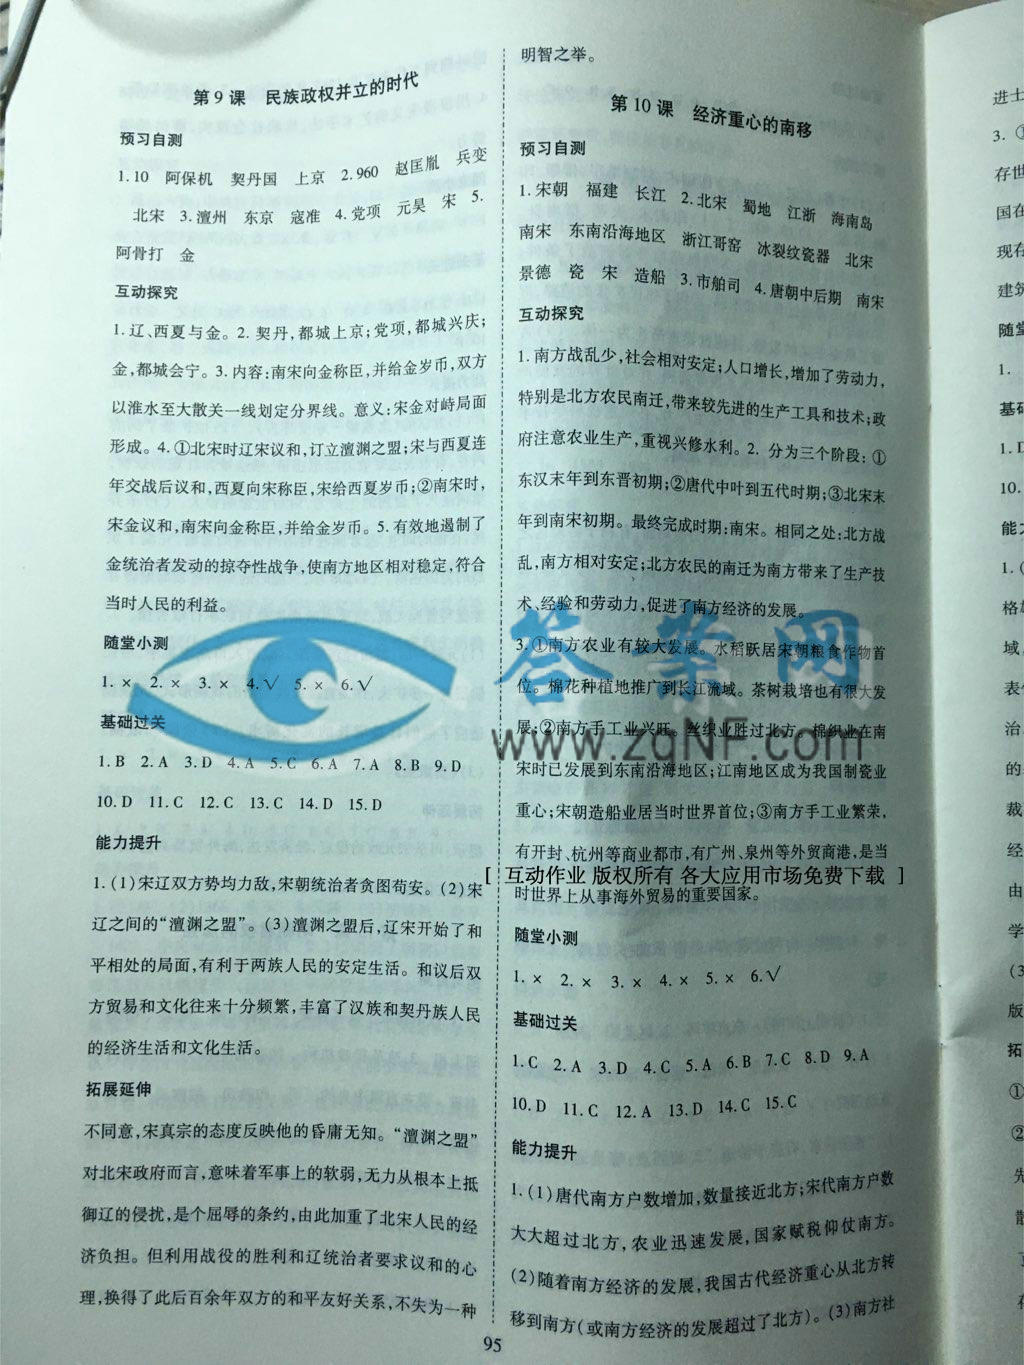 第9课 民族政权并立的时代
预习自测
1.10 阿保机 契丹国 上京 2.960 赵匡胤 兵变
北宋 3.澶州 东京 寇准 4.党项 元昊 宋 5.
阿骨打 金
互动探究
1.辽、西夏与金。2.契丹,都城上京;党项,都城兴庆;
金,都城会宁。3.内容:南宋向金称臣,并给金岁币,双方
以淮水至大散关一线划定分界线。意义:宋金对峙局面
形成。4.①北宋时辽宋议和,订立澶渊之盟;宋与西夏连
年交战后议和,西夏向宋称臣,宋给西夏岁币;②南宋时,
宋金议和,南宋向金称臣,并给金岁币。5.有效地遏制了
金统治者发动的掠夺性战争,使南方地区相对稳定,符合
当时人民的利益。
随堂小测
1.× 2.× 3.× 4.√ 5.× 6.√
基础过关
1.B 2.A 3.D 4.A 5.C 6.A 7.A 8.B 9.D
10.D 11.C 12.C 13.C 14.D 15.D
能力提升
1.(1)宋辽双方势均力敌,宋朝统治者贪图苟安。(2)宋
辽之间的“澶渊之盟”。(3)澶渊之盟后,辽宋开始了和
平相处的局面,有利于两族人民的安定生活。和议后双
方贸易和文化往来十分频繁,丰富了汉族和契丹族人民
的经济生活和文化生活。
拓展延伸
不同意,宋真宗的态度反映他的昏庸无知。“澶渊之盟”
对北宋政府而言,意味着军事上的软弱,无力从根本上抵
御辽的侵扰,是个屈辱的条约,由此加重了北宋人民的经
济负担。但利用战役的胜利和辽统治者要求议和的心
理,换得了此后百余年双方的和平友好关系,不失为一种
明智之举。
第10课 经济重心的南移
预习自测
1.宋朝 福建 长江 2.北宋 蜀地 江浙 海南岛
南宋 东南沿海地区 浙江哥窑 冰裂纹瓷器 北宋
景德 瓷 宋 造船 3.市舶司 4.唐朝中后期 南宋
互动探究
1.南方战乱少,社会相对安定;人口增长,增加了劳动力,
特别是北方农民南迁,带来较先进的生产工具和技术;政
府注意农业生产,重视兴修水利。2. 分为三个阶段:①
东汉末年到东晋初期;②唐代中叶到五代时期;③北宋末
年到南宋初期。最终完成时期:南宋。相同之处:北方战
乱,南方相对安定;北方农民的南迁为南方带来了生产技
术、经验和劳动力,促进了南方经济的发展。
3.①南方农业有较大发展。水稻跃居宋朝粮食作物首
位。棉花种植地推广到长江流域。茶树栽培也有很大发
展;②南方手工业兴旺。丝织业胜过北方。棉织业在南
宋时已发展到东南沿海地区;江南地区成为我国制瓷业
重心;宋朝造船业居当时世界首位;③南方手工业繁荣,
有开封、杭州等商业都市,有广州、泉州等外贸商港,是当
时世界上从事海外贸易的重要国家。
随堂小测
1.× 2.× 3.× 4.× 5.× 6.√
基础过关
1.C 2.A 3.D 4.C 5.A 6.B 7.C 8.D 9.A
10.D 11.C 12.A 13.D 14.C 15.C
能力提升
1.(1)唐代南方户数增加,数量接近北方;宋代南方户数
大大超过北方,农业迅速发展,国家赋税仰仗南方。
(2)随着南方经济的发展,我国古代经济重心从北方转
移到南方(或南方经济的发展超过了北方)。(3)南方社
95
进士
3.
存世
国在
现在
建筑
随堂
1.
基础
1.D
10.
能力
1.(
域,
表
治
的
裁
经
由
学
(3
版
拓
①
②
先
散
答案网
www.zqNF.com
[ 互动作业 版权所有 各大应用市场免费下载 ]